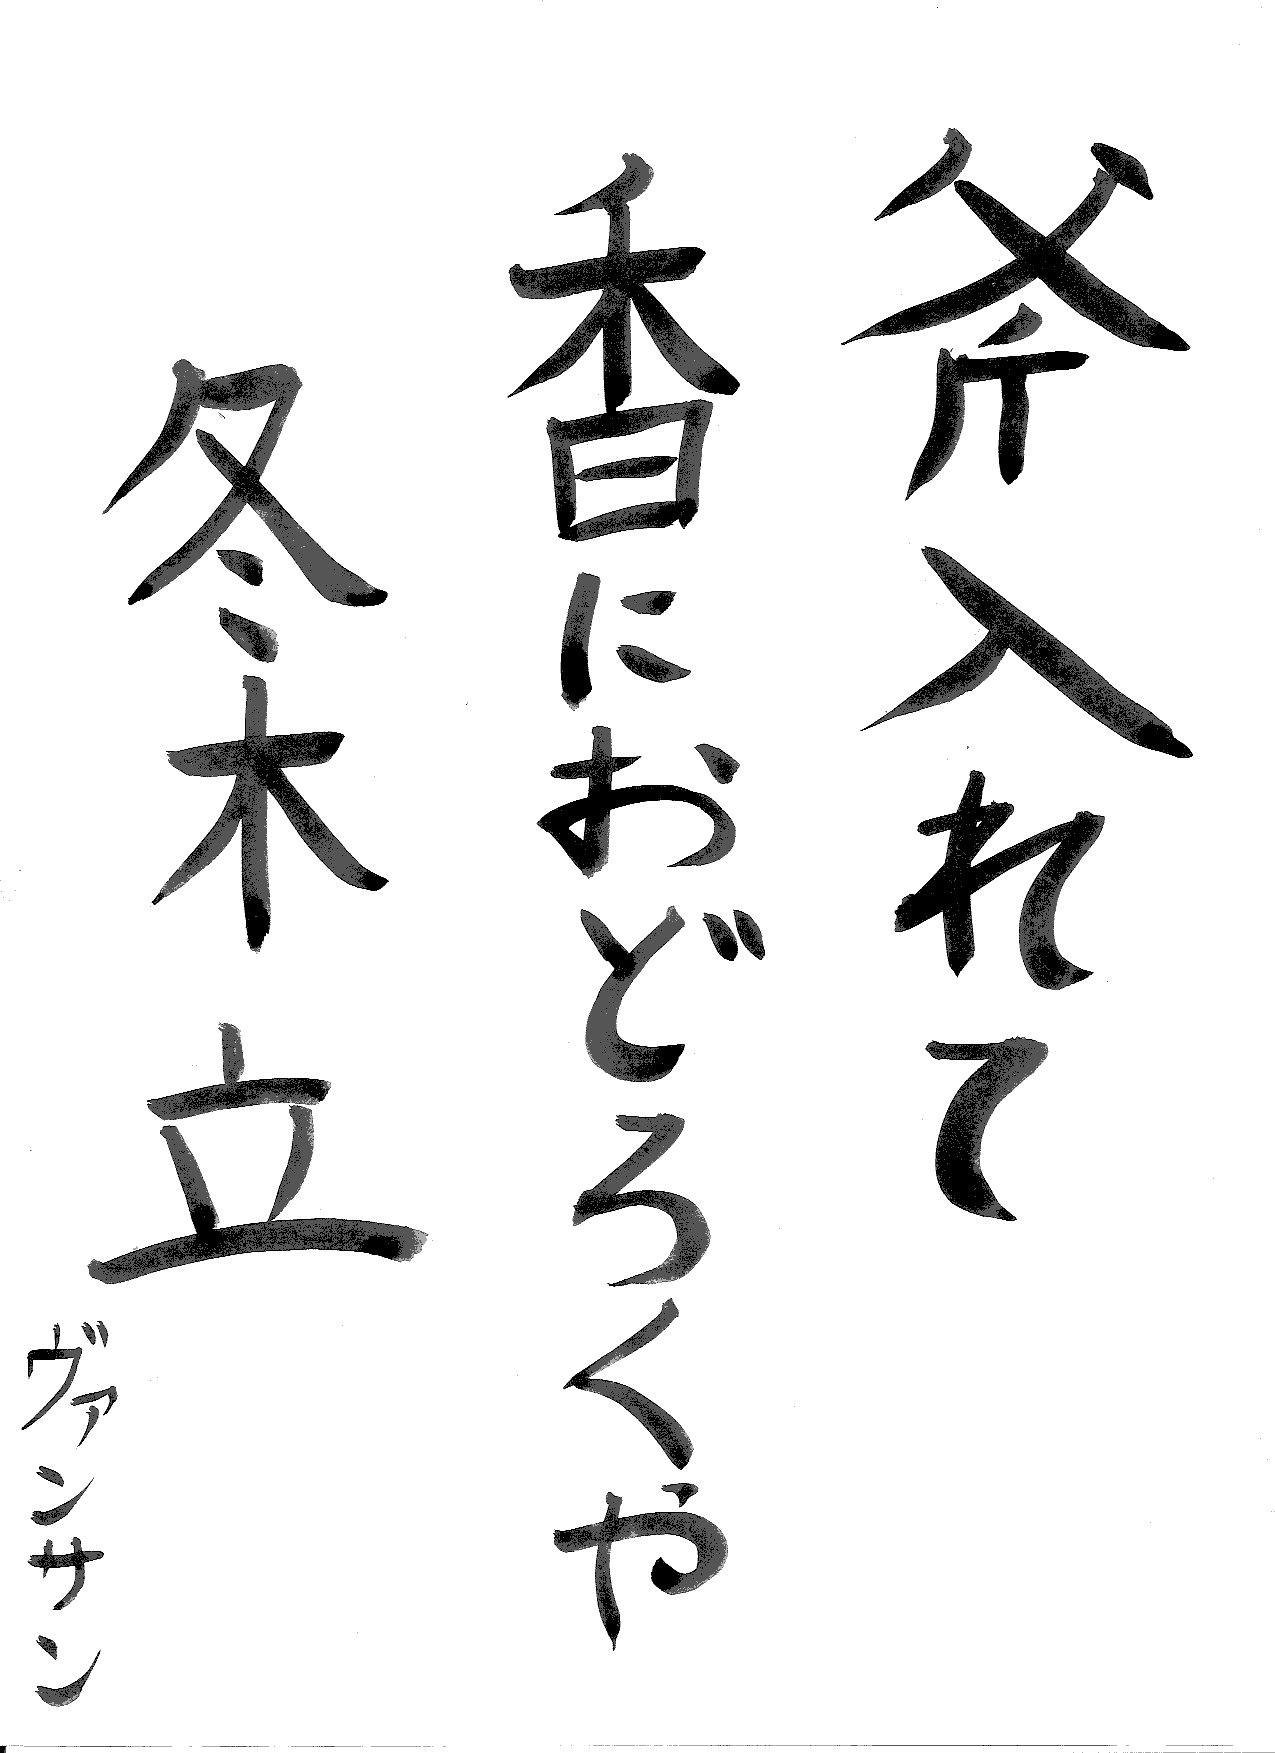 斧入れて
香におどろくや
冬木立
ヴァンサン